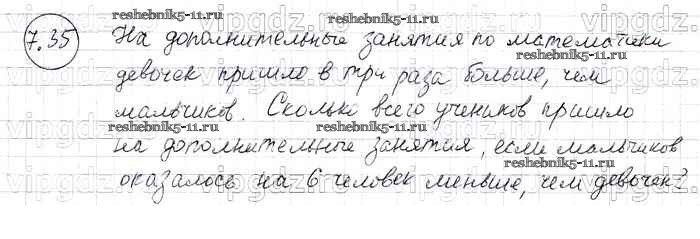 reshebnik5-11.ru
7.35 На дополнительные занятия по математики
reshebnik5-11.ru
девочек пришло в три раза больше, чем
мальчиков. Сколько всего учеников пришло
reshebnik5-11.ru reshebnik5-11.ru
на дополнительные занятия, если мальчиков
reshebnik5-11.ru
оказалось на 6 человек меньше, чем девочек?
reshebnik5-11.ru